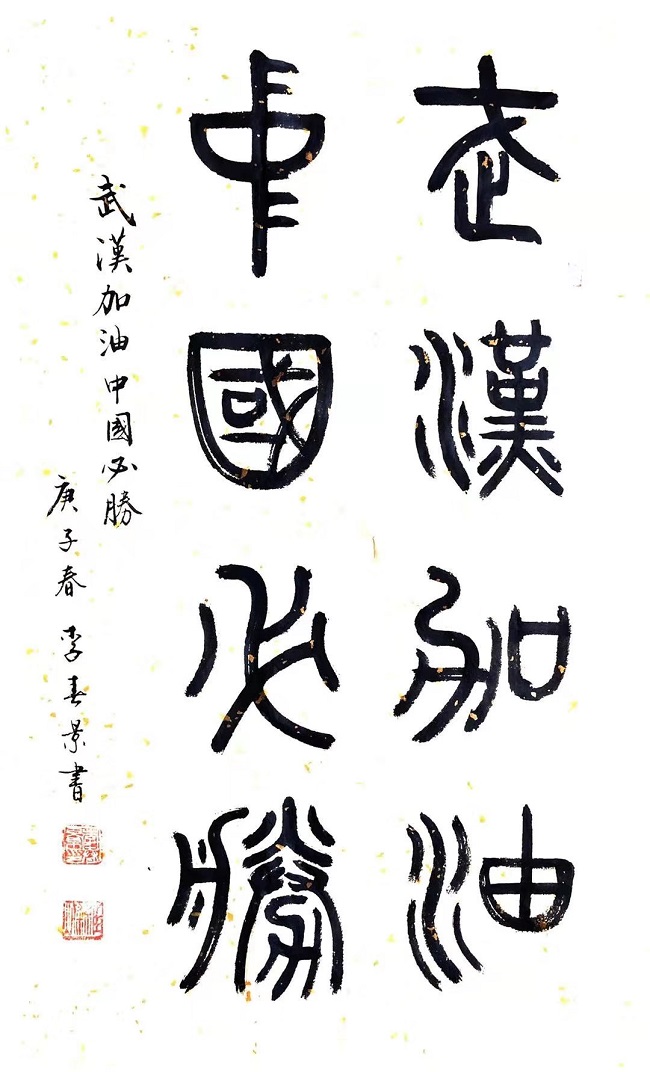 武漢加油
中國必勝
武漢加油中國必勝
庚子春 李春景書